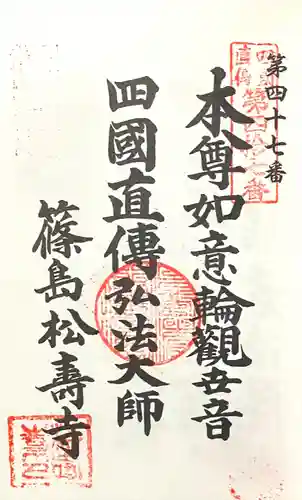 第四十七番
本尊如意輪觀世音
四國直傳弘法大師
篠島松壽寺